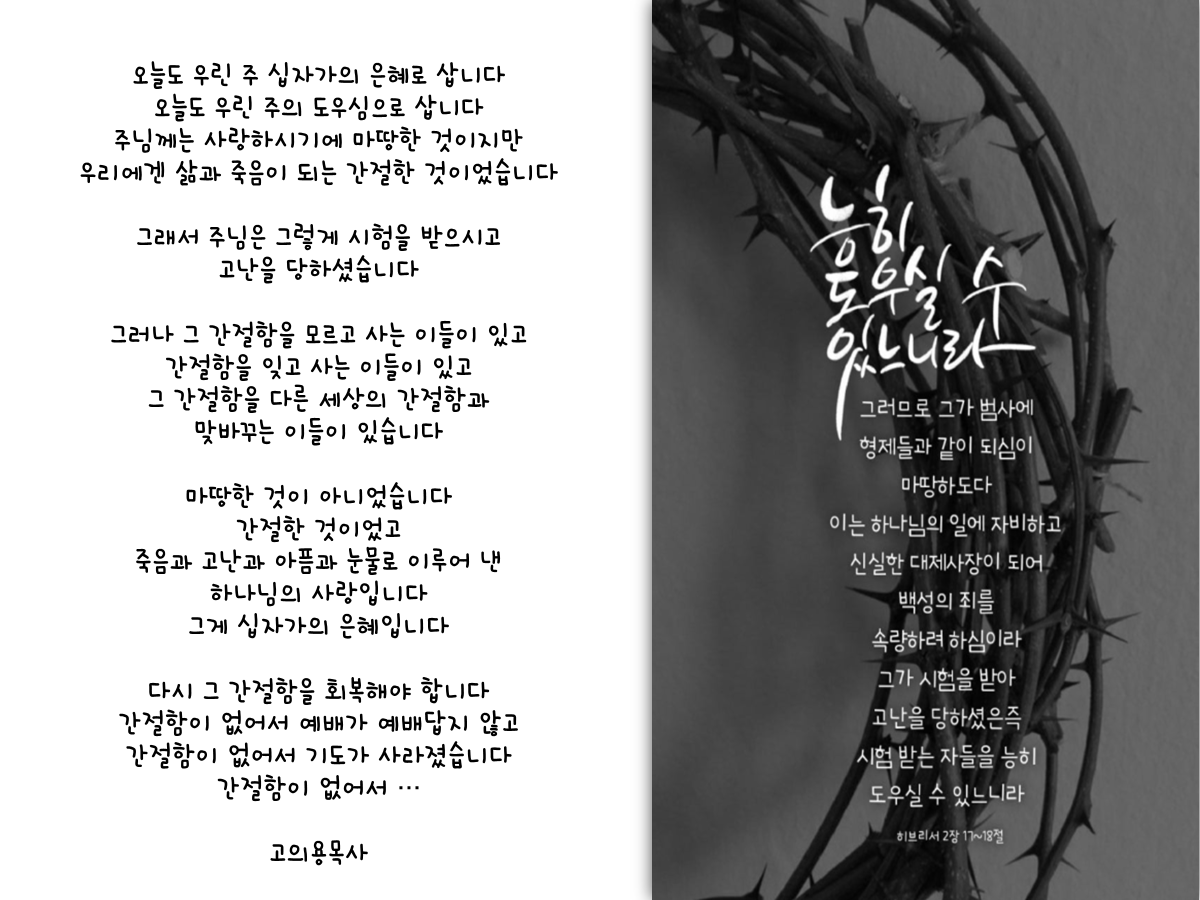 오늘도 우린 주 십자가의 은혜로 삽니다
오늘도 우린 주의 도우심으로 삽니다
주님께는 사랑하시기에 마땅한 것이지만
우리에겐 삶과 죽음이 되는 간절한 것이었습니다
그래서 주님은 그렇게 시험을 받으시고
고난을 당하셨습니다
그러나 그 간절함을 모르고 사는 이들이 있고
간절함을 잊고 사는 이들이 있고
그 간절함을 다른 세상의 간절함과
맞바꾸는 이들이 있습니다
마땅한 것이 아니었습니다
간절한 것이었고
죽음과 고난과 아픔과 눈물로 이루어 낸
하나님의 사랑입니다
그게 십자가의 은혜입니다
다시 그 간절함을 회복해야 합니다
간절함이 없어서 예배가 예배답지 않고
간절함이 없어서 기도가 사라졌습니다
간절함이 없어서 …
고의용목사
능히
도우실 수
있느니라
그러므로 그가 범사에
형제들과 같이 되심이
마땅하도다
이는 하나님의 일에 자비하고
신실한 대제사장이 되어
백성의 죄를
속량하려 하심이라
그가 시험을 받아
고난을 당하셨은즉
시험 받는 자들을 능히
도우실 수 있느니라
히브리서 2장 17~18절